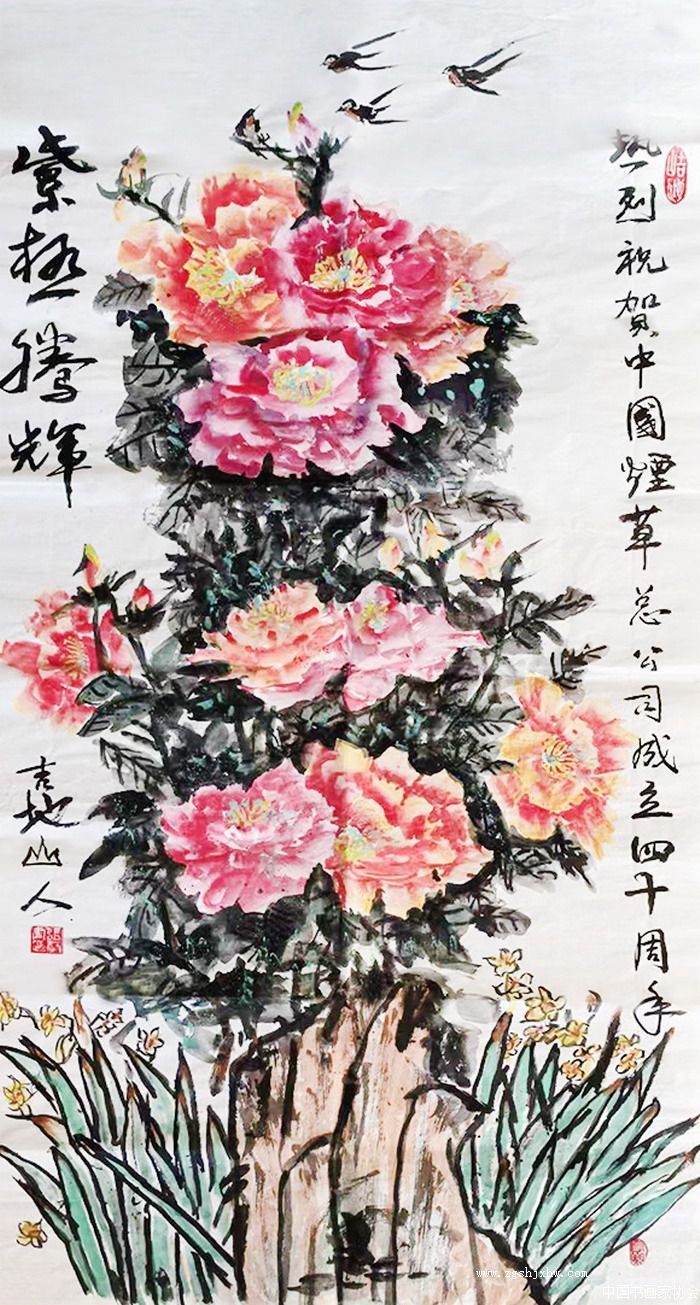 热烈祝贺中國煙草总公司成立四十周年
紫極騰輝
吉地山人
www.zgshjxhw.com
中国书画家协会